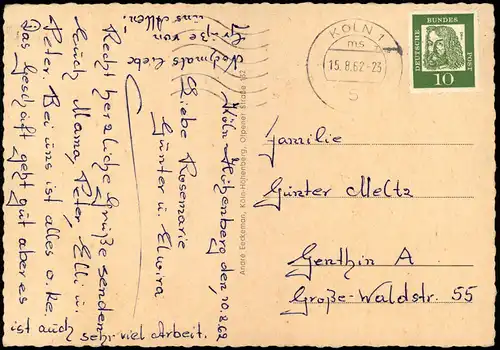 Köln-Höhenberg, den, 10.8.62
Liebe Rosemarie
Günter u. Elwira
Recht herzliche Grüße senden
Euch Mama, Peter, Elli u.
Peter. Bei uns ist alles o.ke.
Das Geschäft geht gut aber es
ist auch sehr viel Arbeit.
Nochmals liebe
Grüße von
uns Allen!
André Eeckeman, Köln-Höhenberg, Olpener Straße 182
KÖLN 1
ms
15.8.62-23
5
DEUTSCHE BUNDESPOST
10
Familie
Günter Meltz
Genthin A
Große-Waldstr. 55